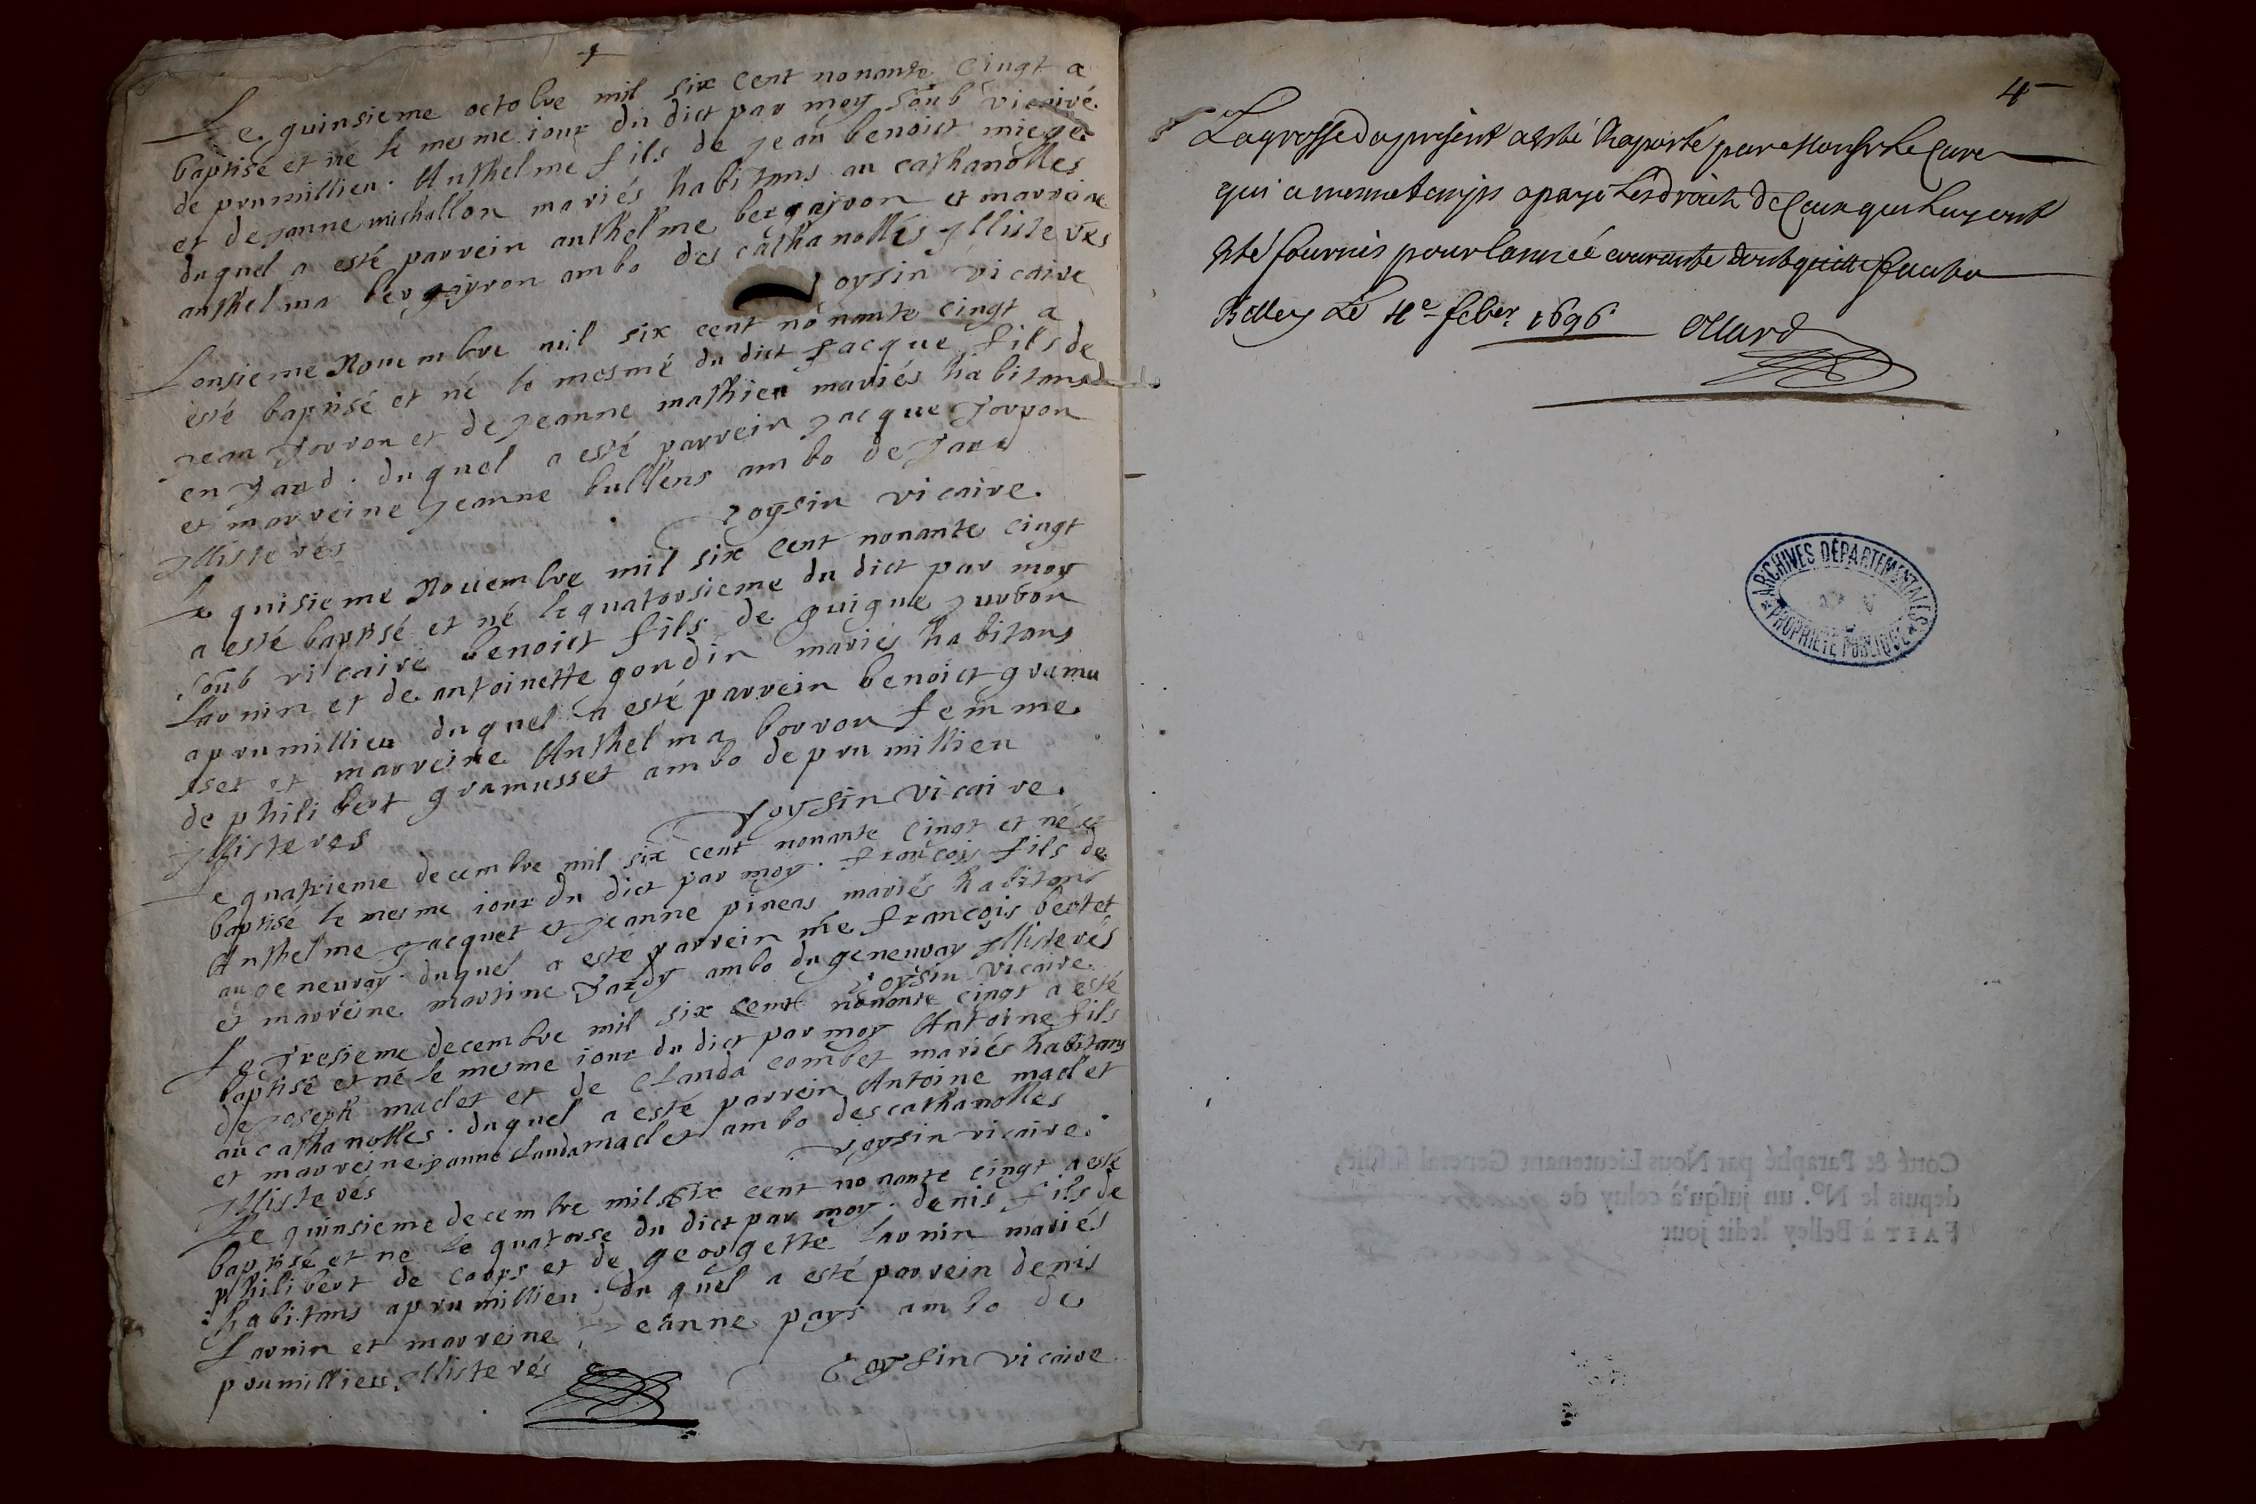 Le quinsieme octobre mil six cent nonante cinqt a
baptisé et né le mesme iour du dict par moy soub vicairé
de prumillieu. Anthelme fils de jean benoict miege
et de janne michallon mariés habitans au cathanolles
duquel a esté parrein anthelme bergayron et marreine
anthelma bergayron ambo des cathanolles jllisterés
Voysin vicaire
Lonsieme Nouembre mil six cent nonante cinqt a
esté baptisé et né le mesmé du dict jacque fils de
jean Jorron et de jeanne mathieu mariés habitans
en Jard. duquel a esté parrein jacque Jorron
et marreine jeanne bulliens ambo de Jard
jllisterés
Voysin vicaire.
Le quisieme Nouembre mil six cent nonante cinqt
a esté baptisé et né le quatorsieme du dict par moy
soub vicairé benoict fils de guigue jurbon
Larnin et de antoinette gondin mariés habitans
a prumillieu duquel a esté parrein benoict gramu
sset et marreine Anthelma borron femme
de philibert gramusset ambo de prumillieu
jllisteres
Voysin vicaire.
Le quatrieme decembre mil six cent nonante cinqt et né et
baptisé le mesme iour du dict par moy. françois fils de
Anthelme jacquet et jeanne pineas mariés habitans
au geneuray. duquel a esté parrein me françois bertet
et marréine martine Jardy ambo du geneuray jllisterés
Voysin vicaire.
Le tresieme decembre mil six cent nonante cinqt a esté
baptisé et né le mesme iour du dict par moy Antoine fils
de joseph maclet et de Clauda combet mariés habitans
au cathanolles. duquel a esté parrein Antoine maclet
et marreine janne Clauda maclet ambo des cathanolles
jllisterés
Voysin vicaire.
Le quinsieme decembre mil six cent nonante cinqt a esté
baptisé et né le quatorse du dict par moy. denis fils de
philibert de corps et de georgette Larnin mariés
habitans a prumillieu. du quel a esté parrein denis
Larnin et marreine jeanne pays ambo de
prumillieu jllisterés
Voysin vicaire
4
La grosse du présent a esté Raporté par Monsr Le Cure
qui a mesme temps a payé Les droits de Ceux qui Luy ont
esté fournis pour lannéé courante dont quitte
Belley Le 4e feber 1696 Ollard
ARCHIVES DÉPARTEMENTALES
PROPRIÉTÉ PUBLIQUE
Cotté & Paraphé par Nous Lieutenant General
depuis le No. un jusqu'à celuy de
FAIT à Belley ledit jour